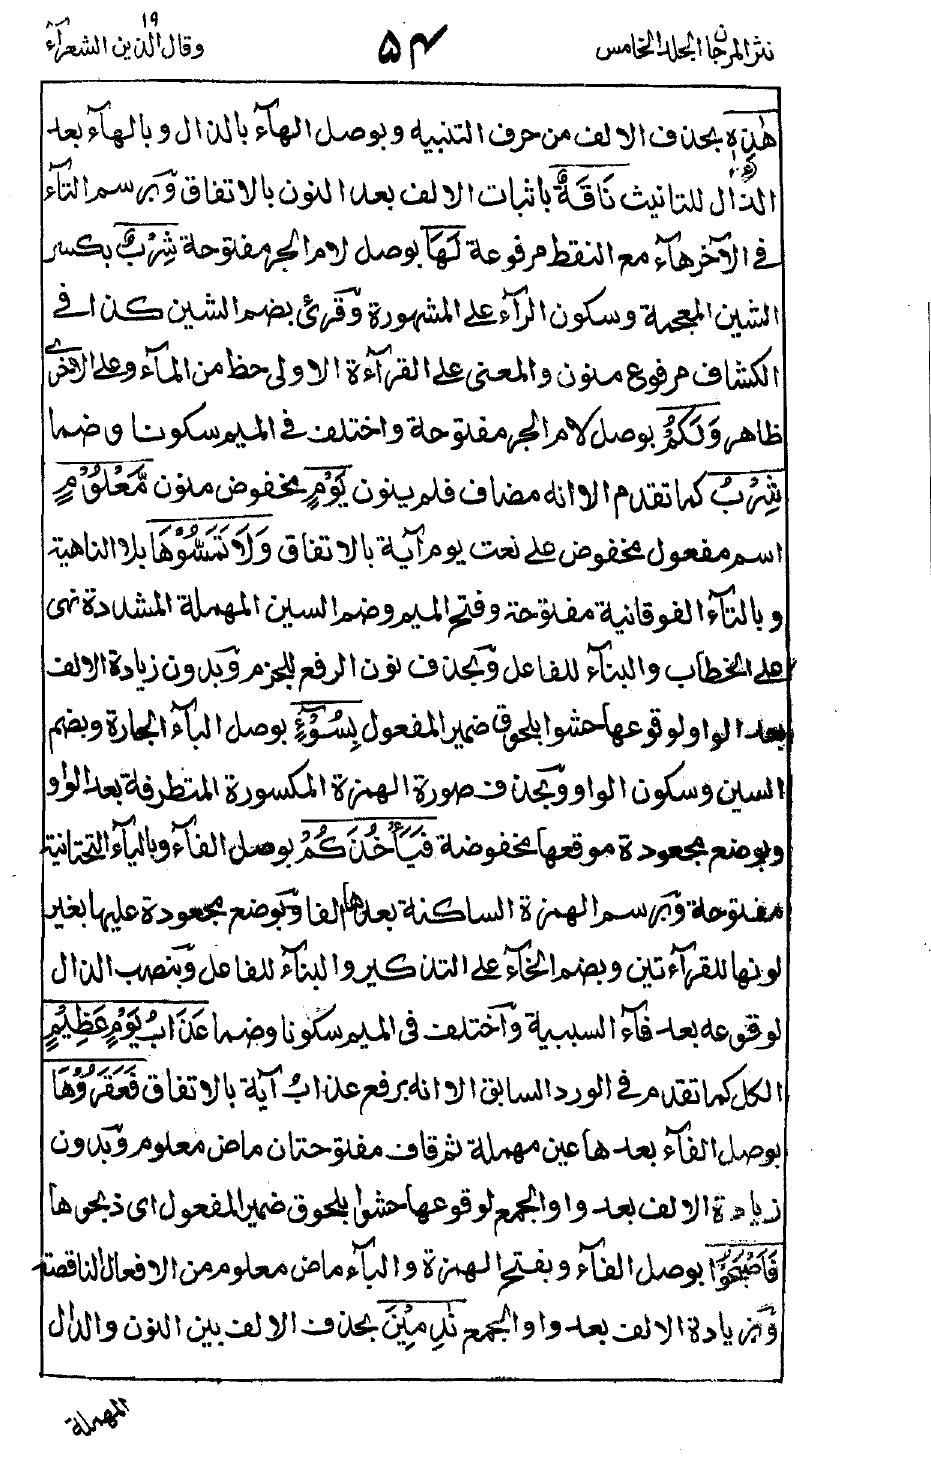 نثر المرجان المجلد الخامس
۵۴
وقال الذين ۱۹ الشعرآء
هٰذِهٖ بحذف الالف من حرف التنبيه وبوصل الهآء بالذال وبالهآء بعد
الذال للتانيث نَاقَةٌ باثبات الالف بعد النون بالاتفاق وبرسم التآء
فى الآخر هآء مع النقط مرفوعة لَهَا بوصل لام الجر مفتوحة شِرْبٌ بكسر
الشين المعجمة وسكون الرآء على المشهورة وقرئ بضم الشين كذا فى
الكشاف مرفوع منون والمعنى على القرآءة الاولى حظ من المآء وعلى الاخرى
ظاهر وَلَكُمْ بوصل لام الجر مفتوحة واختلف فى الميم سكونا وضما
شِرْبُ كما تقدم الا انه مضاف فلم ينون يَوْمٍ مخفوض منون مَّعْلُوْمٍ
اسم مفعول مخفوض على نعت يوم آية بالاتفاق وَلَا تَمَسُّوْهَا بلا الناهية
وبالتآء الفوقانية مفتوحة وفتح الميم وضم السين المهملة المشددة نهى
على الخطاب والبنآء للفاعل وبحذف نون الرفع للجزم وبدون زيادة الالف
بعد الواو لوقوعها حشوا بلحوق ضمير المفعول بِسُوْٓءٍ بوصل البآء الجارة وبضم
السين وسكون الواو وبحذف صورة الهمزة المكسورة المتطرفة بعد الواو
وبوضع مجعودة موقعها مخفوضة فَيَأْخُذَكُمْ بوصل الفآء وباليآء التحتانية
مفتوحة وبرسم الهمزة الساكنة بعدها الفا وبوضع مجعودة عليها بغير
لونها للقرآءتين وبضم الخآء على التذكير والبنآء للفاعل وبنصب الذال
لوقوعه بعد فآء السببية واختلف فى الميم سكونا وضما عَذَابُ يَوْمٍ عَظِيْمٍ
الكل كما تقدم فى الورد السابق الا انه برفع عذاب آية بالاتفاق فَعَقَرُوْهَا
بوصل الفآء بعدها عين مهملة ثم قاف مفتوحتان ماض معلوم وبدون
زيادة الالف بعد واو الجمع لوقوعها حشوا بلحوق ضمير المفعول اى ذبحوها
فَاَصْبَحُوْا بوصل الفآء وبفتح الهمزة والبآء ماض معلوم من الافعال الناقصة
وبزيادة الالف بعد واو الجمع نٰدِمِيْنَ بحذف الالف بين النون والدال
المهملة